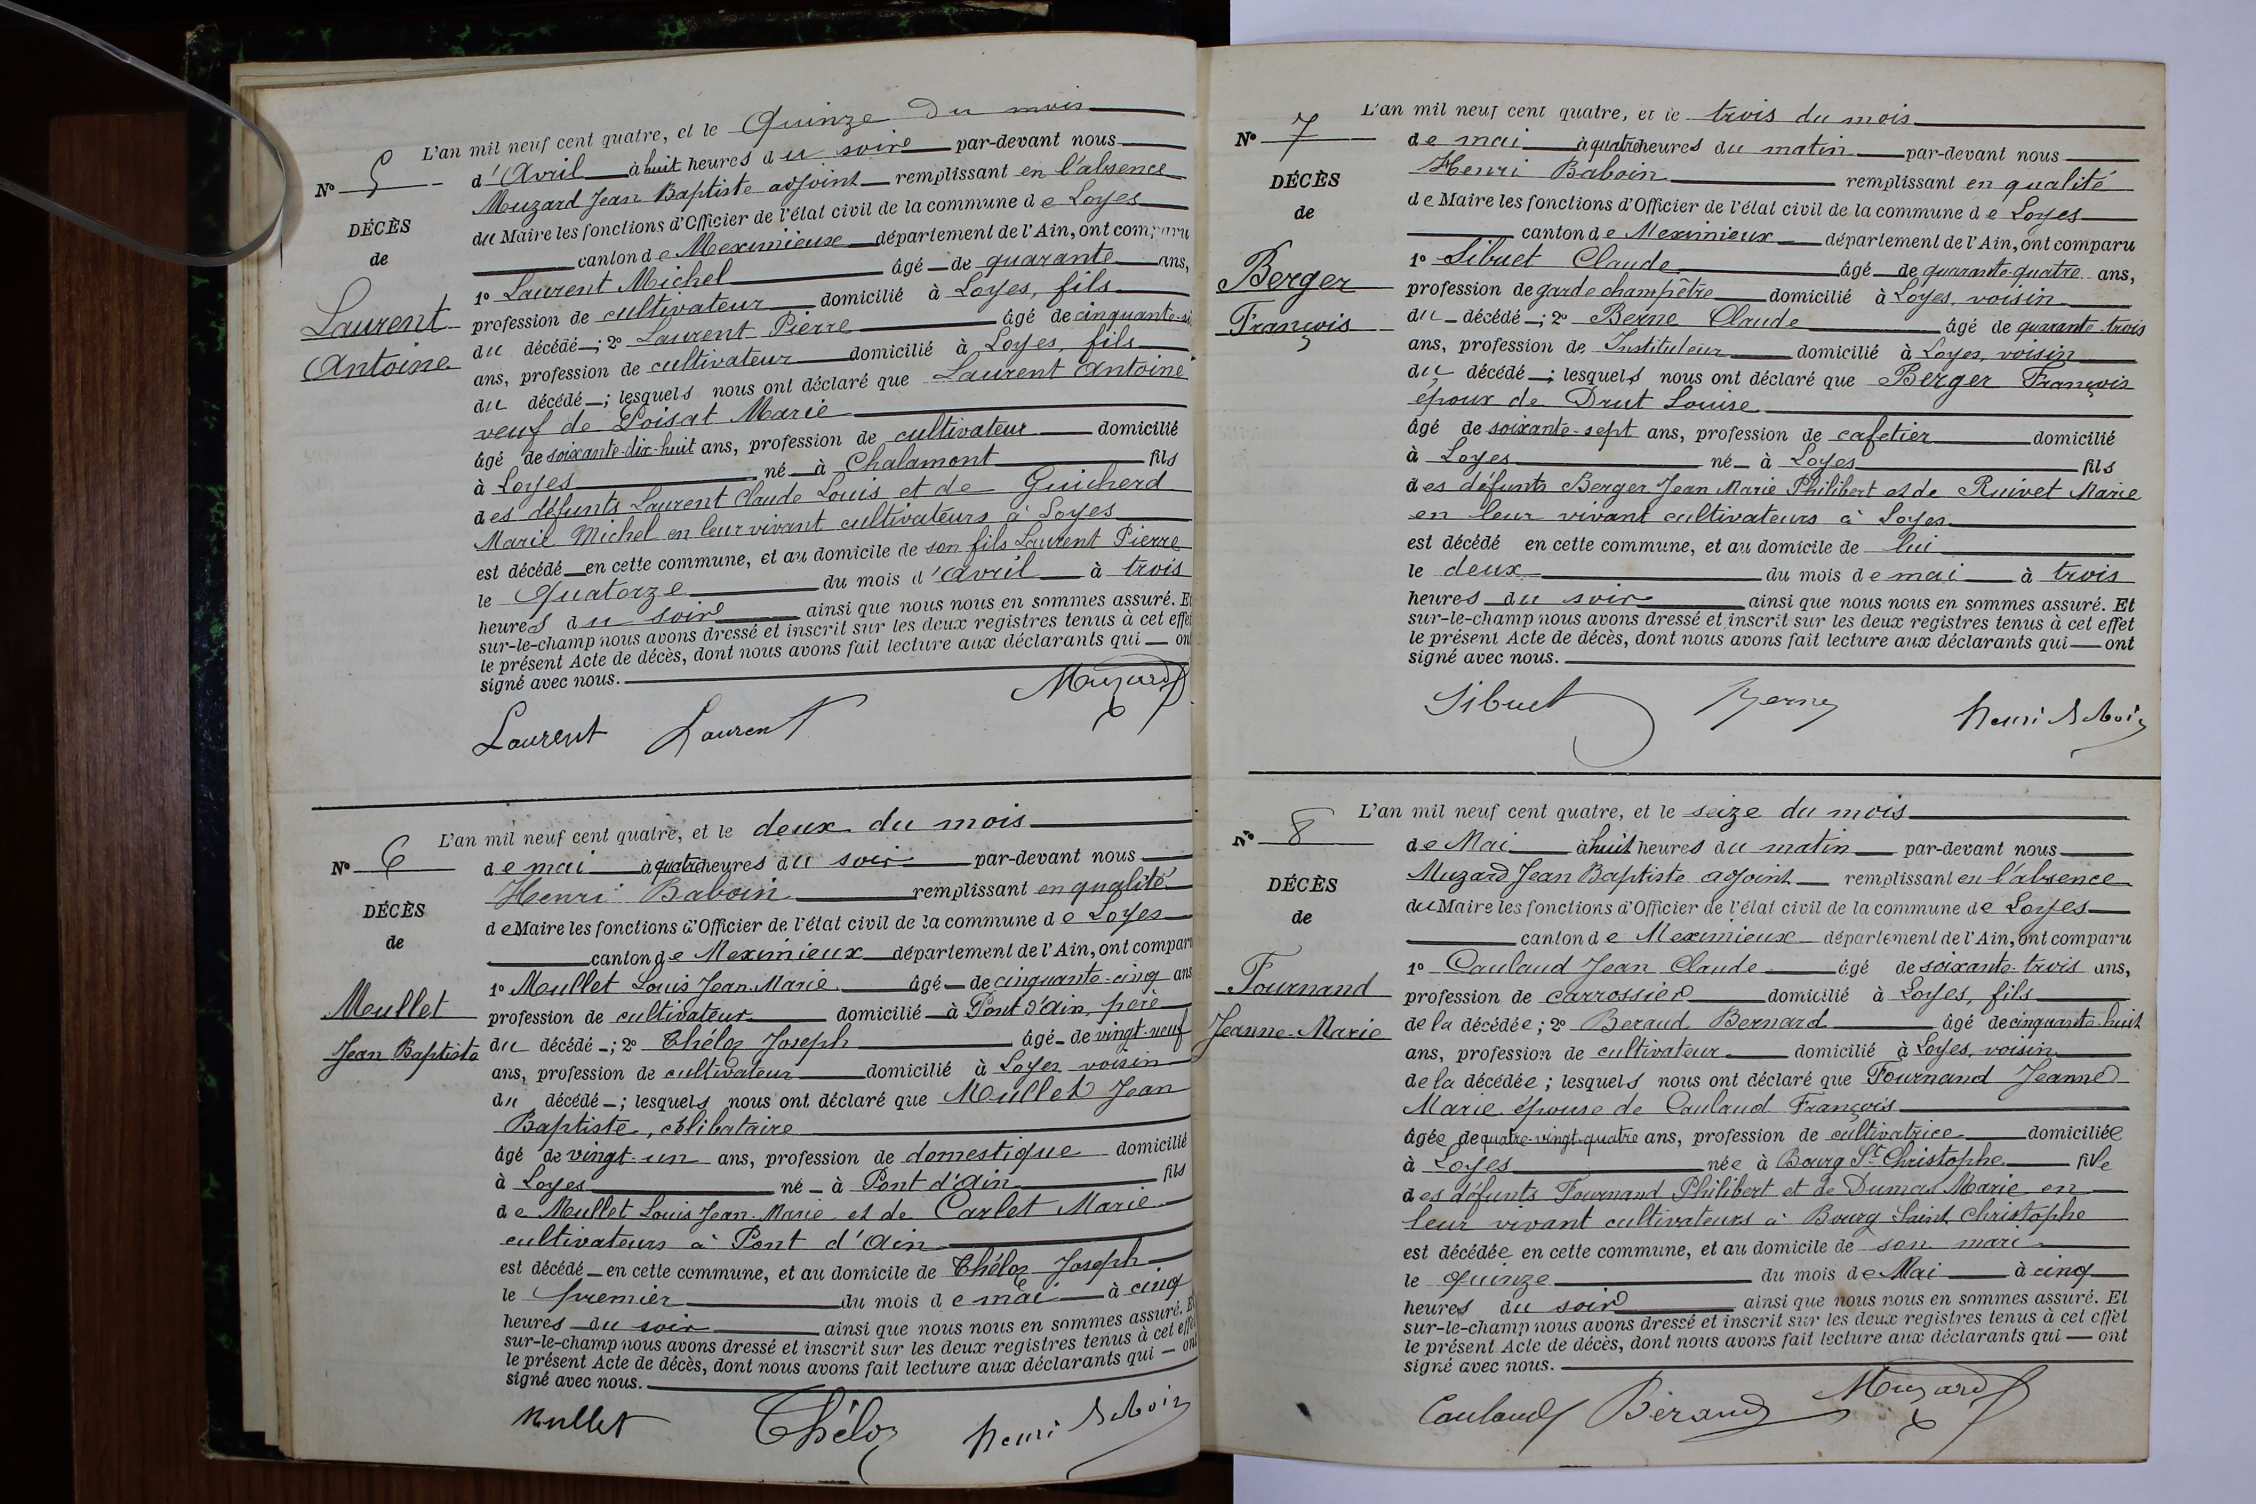 L'an mil neuf cent quatre, et le Quinze du mois
N° 5
d'Avril à huit heures du soir par-devant nous
Muzard Jean Baptiste adjoint remplissant en l'absence
DÉCÈS
du Maire les fonctions d'Officier de l'état civil de la commune de Loyes
de
canton de Meximieux département de l'Ain, ont comparu
1° Laurent Michel âgé de quarante ans,
Laurent
profession de cultivateur domicilié à Loyes, fils
du décédé ; 2° Laurent Pierre âgé de cinquante-si
Antoine
ans, profession de cultivateur domicilié à Loyes, fils
du décédé ; lesquels nous ont déclaré que Laurent Antoine
veuf de Poisat Marie
âgé de soixante-dix-huit ans, profession de cultivateur domicilié
à Loyes né à Chalamont fils
des défunts Laurent Claude Louis et de Guicherd
Marie Michel en leur vivant cultivateurs à Loyes
est décédé en cette commune, et au domicile de son fils Laurent Pierre
le Quatorze du mois d'avril à trois
heures du soir ainsi que nous nous en sommes assuré. Et
sur-le-champ nous avons dressé et inscrit sur les deux registres tenus à cet effet
le présent Acte de décès, dont nous avons fait lecture aux déclarants qui ont
signé avec nous.
Laurent Laurent Muzard
L'an mil neuf cent quatre, et le deux du mois
N° 6
de mai à quatre heures du soir par-devant nous
Henri Baboin remplissant en qualité
DÉCÈS
de Maire les fonctions d'Officier de l'état civil de la commune de Loyes
de
canton de Meximieux département de l'Ain, ont comparu
1° Meullet Louis Jean Marie âgé de cinquante-cinq ans
Meullet
profession de cultivateur domicilié à Pont d'Ain, père
Jean Baptiste
du décédé ; 2° Théloz Joseph âgé de vingt-neuf
ans, profession de cultivateur domicilié à Loyes voisin
du décédé ; lesquels nous ont déclaré que Meullet Jean
Baptiste, célibataire
âgé de vingt-un ans, profession de domestique domicilié
à Loyes né à Pont d'Ain fils
de Meullet Louis Jean-Marie et de Carlet Marie
cultivateurs à Pont d'Ain
est décédé en cette commune, et au domicile de Théloz Joseph
le premier du mois de mai à cinq
heures du soir ainsi que nous nous en sommes assuré. Et
sur-le-champ nous avons dressé et inscrit sur les deux registres tenus à cet effet
le présent Acte de décès, dont nous avons fait lecture aux déclarants qui ont
signé avec nous.
Mullet Théloz Henri Baboin
L'an mil neuf cent quatre, et le trois du mois
N° 7
de mai à quatre heures du matin par-devant nous
Henri Baboin remplissant en qualité
DÉCÈS
de Maire les fonctions d'Officier de l'état civil de la commune de Loyes
de
canton de Meximieux département de l'Ain, ont comparu
1° Sibuet Claude âgé de quarante-quatre ans,
Berger
profession de garde champêtre domicilié à Loyes, voisin
François
du décédé ; 2° Berne Claude âgé de quarante-trois
ans, profession de Instituteur domicilié à Loyes, voisin
du décédé ; lesquels nous ont déclaré que Berger François
époux de Drut Louise
âgé de soixante-sept ans, profession de cafetier domicilié
à Loyes né à Loyes fils
des défunts Berger Jean Marie Philibert et de Ruivet Marie
en leur vivant cultivateurs à Loyes
est décédé en cette commune, et au domicile de lui
le deux du mois de mai à trois
heures du soir ainsi que nous nous en sommes assuré. Et
sur-le-champ nous avons dressé et inscrit sur les deux registres tenus à cet effet
le présent Acte de décès, dont nous avons fait lecture aux déclarants qui ont
signé avec nous.
Sibuet Berne Henri Baboin
L'an mil neuf cent quatre, et le seize du mois
N° 8
de Mai à huit heures du matin par-devant nous
Muzard Jean Baptiste adjoint remplissant en l'absence
DÉCÈS
du Maire les fonctions d'Officier de l'état civil de la commune de Loyes
de
canton de Meximieux département de l'Ain, ont comparu
1° Caulaud Jean Claude âgé de soixante-trois ans,
Fournand
profession de carrossier domicilié à Loyes, fils
Jeanne-Marie
de la décédée ; 2° Beraud Bernard âgé de cinquante-huit
ans, profession de cultivateur domicilié à Loyes, voisin
de la décédée ; lesquels nous ont déclaré que Fournand Jeanne
Marie épouse de Caulaud François
âgée de quatre-vingt-quatre ans, profession de cultivatrice domiciliée
à Loyes née à Bourg St Christophe fille
des défunts Fournand Philibert et de Dumas Marie en
leur vivant cultivateurs à Bourg Saint Christophe
est décédée en cette commune, et au domicile de son mari
le quinze du mois de Mai à cinq
heures du soir ainsi que nous nous en sommes assuré. Et
sur-le-champ nous avons dressé et inscrit sur les deux registres tenus à cet effet
le présent Acte de décès, dont nous avons fait lecture aux déclarants qui ont
signé avec nous.
Caulaud Béraud Muzard